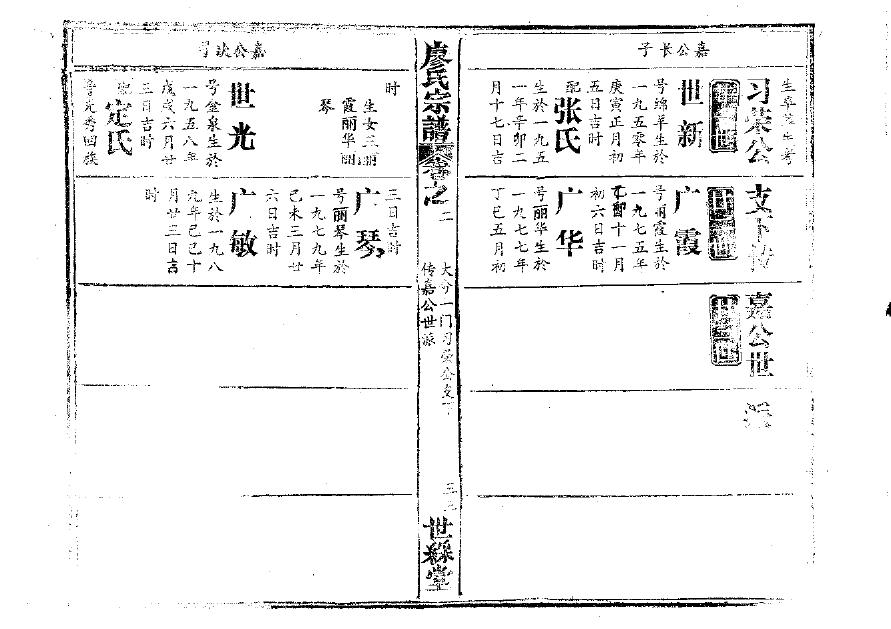 嘉公长子
生卒
习荣公
支下传
嘉公世
派
廿
世
廿
世
廿
世
世新
号绵羊生於
一九五零年
庚寅正月初
五日吉时
配
张氏
生於一九五
一年辛卯二
月十七日吉
广霞
号丽霞生於
一九七五年
十一月
初六日吉时
广华
号丽华生於
一九七七年
丁巳五月初
廖氏宗譜
卷之二
大分一门习荣公支下
传嘉公世派
三
世綵堂
嘉公
时
生女三丽
霞丽华丽
琴
世光
号金泉生於
一九五八年
戊戌六月廿
三日吉时
配
定氏
三日吉时
广琴
号丽琴生於
一九七九年
己未三月廿
六日吉时
广敏
生於一九八
九年己巳十
月廿三日吉
时